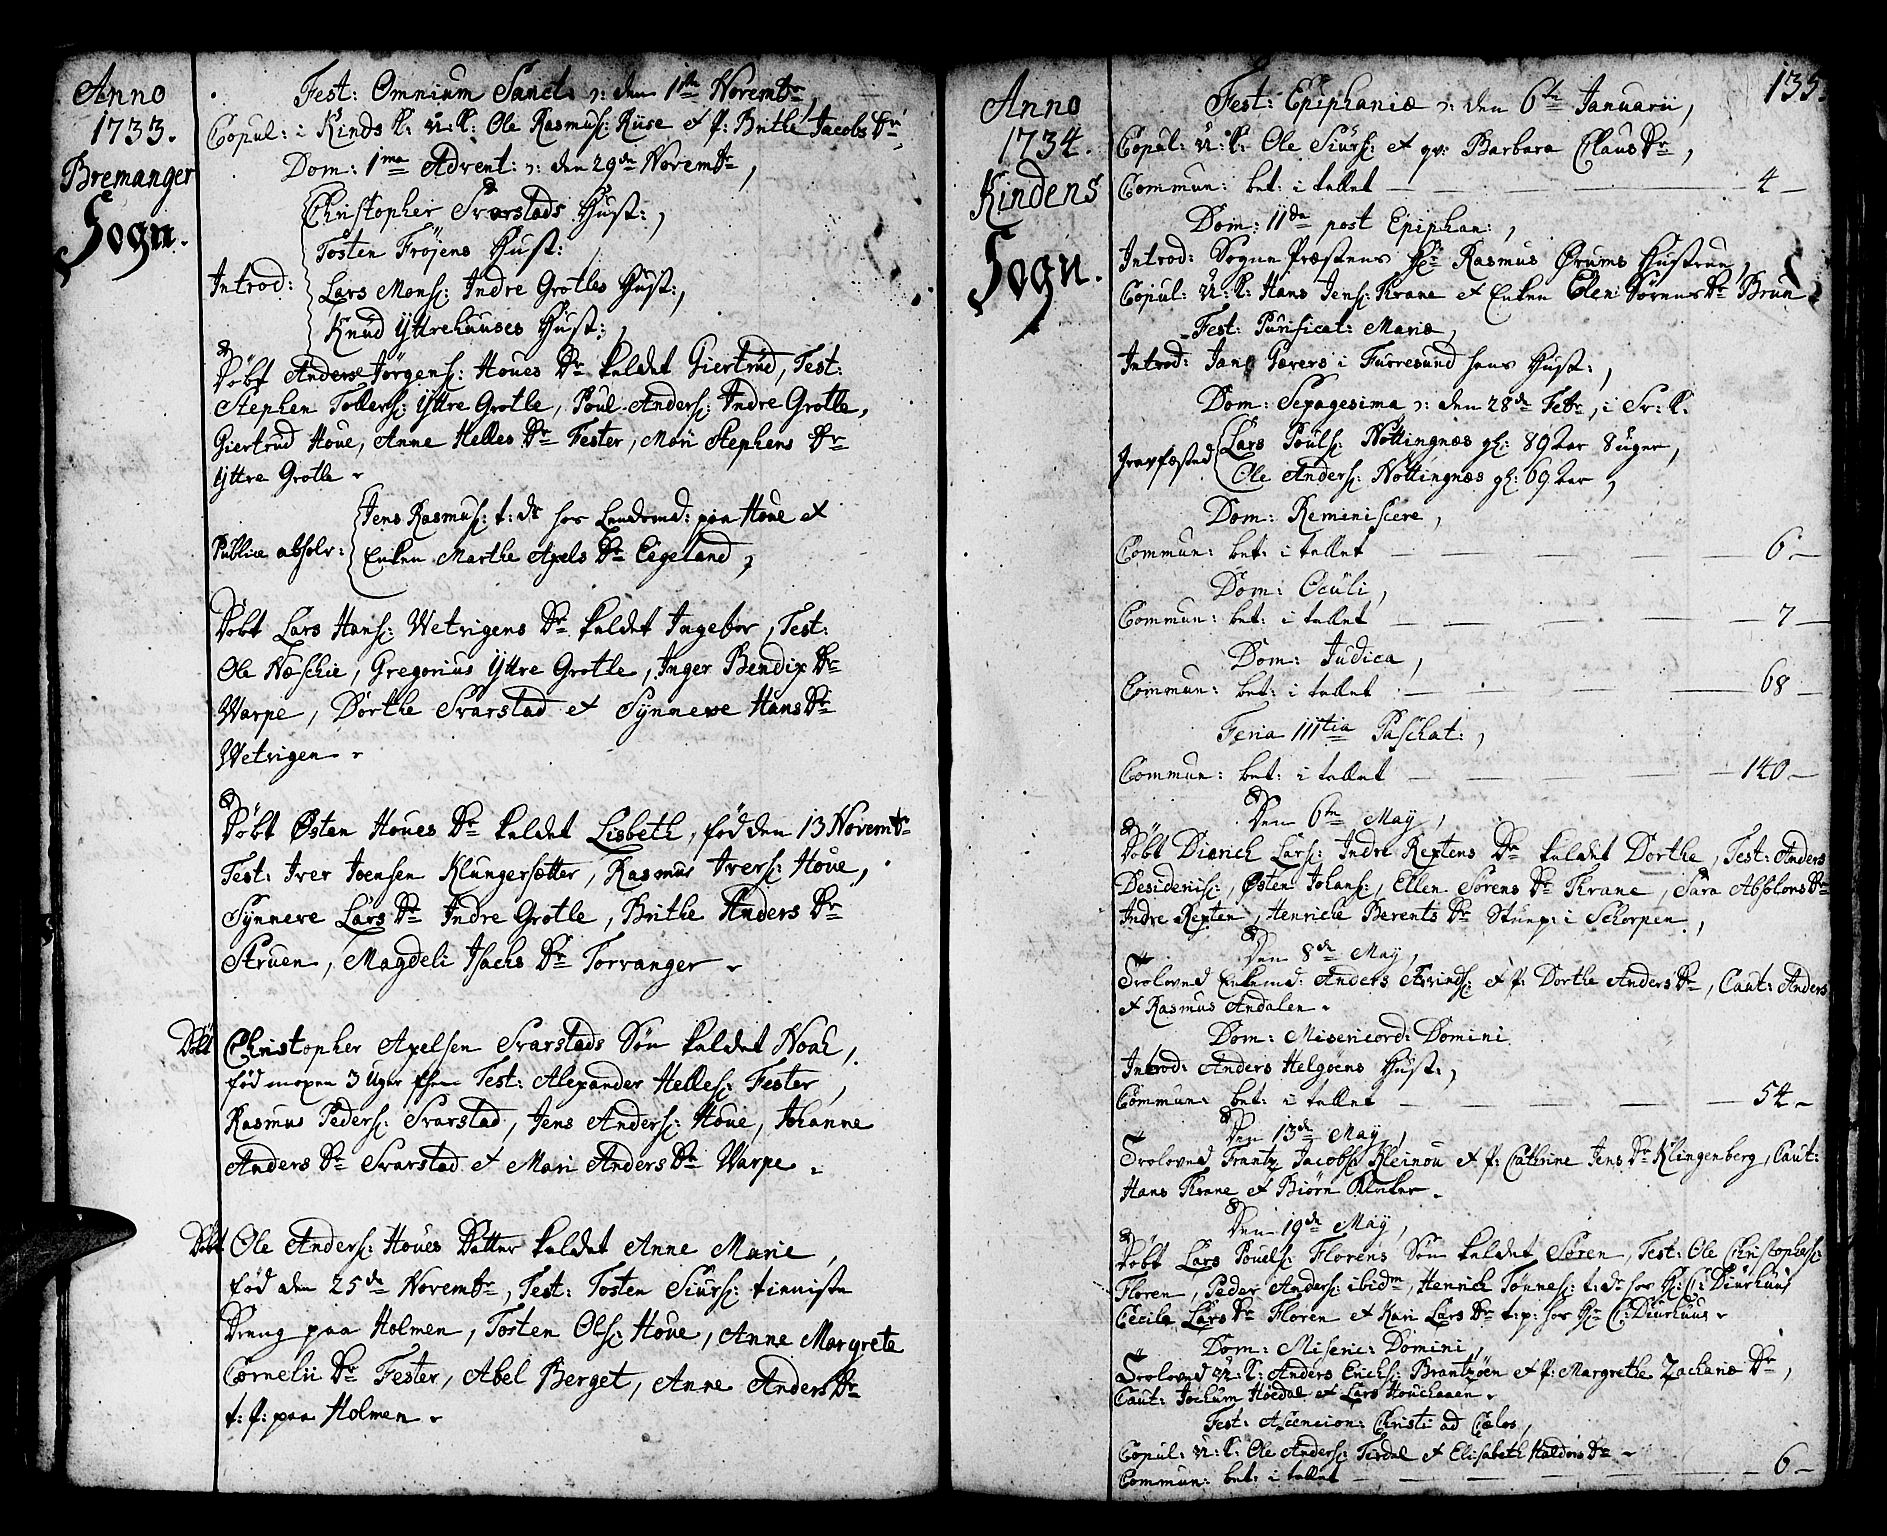 Anno
1733.
Bremanger
Sogn.
Fest: Omnium Sanct: ɔ: den 1te Novembr,
Copul: i Kinds K: U: K: Ole Rasmuss: Riise et p: Brithe Jacobs Dr,
Dom: 1ma Advent: ɔ: den 29de Novembr,
Christopher Svarstads Hust:,
Tosten Fröjens Hust:
Introd: Lars Monss: Indre Grotles Hust:,
Knud Yttrehuuses Hust:,
Döbt Anders Jörgens: Houes Dr kaldet Giertrud, Test:
Stephen Tollers: Yttre Grotle, Poul Anders: Indre Grotle,
Giertrud Houe, Anne Helles Dr Fester, Mari Stephens Dr
Yttre Grotle
Jens Rasmus: t: dr hos Lendsmd: paa Houe et
Publice absolv: Enken Marthe Apels Dr Eegeland,
Döbt Lars Hans: Wetvigens Dr kaldet Ingebor, Test:
Ole Næschie, Gregorius Yttre Grotle, Inger Bendix Dr
Warpe, Dorthe Svarstad et Synneve Hans Dr
Wetvigen
Döbt Østen Houes Dr kaldet Lisbeth, föd den 13 Novembr
Test: Iver Joensen Klungersætter, Rasmus Ivers: Houe,
Synneve Lars Dr Indre Grotle, Brithe Anders Dr
Struen, Magdeli Isachs Dr Torvanger
Döbt Christopher Apelsen Svarstads Sön kaldet Noah,
föd 3 Uger Test: Alexander Helles: Fester,
Rasmus Peders: Svarstad, Jens Anders: Houe, Johanne
Anders Dr Svarstad et Mari Anders Dr Warpe
Döbt Ole Anders: Houes Datter kaldet Anne Marie,
föd den 25de Novembr, Test: Tosten Siurs: tieniste
Dreng paa Holmen, Torsten Ols: Houe, Anne Margrete
Cornelii Dr Fester, Abel Berget, Anne Anders Dr
t: p: paa Holmen
135.
Anno
1734.
Kindens
Sogn.
Fest: Epiphaniæ ɔ: den 6te Januarii,
Copul: U: K: Ole Siurs: et qv: Barbara Claus Dr,
Commun: bet: i tallet 4
Dom: 11da post Epiphan:,
Introd: Sogne Præstens Hr Rasmus Ørums Hustrue,
Copul: U: K: Hans Jens: Krane et Enken Elen Sörens Dr Brun
Fest: Purificat: Mariæ,
Introd: Jans i Furresund hans Hust:,
Dom: Sexagesima ɔ: den 28de Febr, i Sv: K:
Gravfæsted Lars Pouls: Nottingnæs gl: 89 Aar 8 uger,
Ole Anders: Nottingnæs gl: 69 Aar,
Dom: Reminiscere,
Commun: bet: i tallet 6
Dom: Oculi,
Commun: bet: i tallet 7
Dom: Judica,
Commun: bet: i tallet 68
Feria 111tia Paschat:,
Commun: bet: i tallet 140
Den 6te May,
Döbt Diarich Lars: Indre Reptens Dr kaldet Dorthe, Test: Anders
Desideriis:, Østen Johans:, Ellen Sörens Dr Krane, Sara Absolons Dr
Indre Repten, Henriche Berents Dr Stump: i Schorpen,
Den 8de May,
Troloved Enkemd: Anders Arvinds: et p: Dorthe Anders Dr, Caut: Anders
et Rasmus Andalen
Dom: Misericord: Domini
Introd: Anders Helgöens Hust:,
Commun: bet: i tallet 54
Den 13de May,
Troloved Frantz Jacobs: Kleinou et p: Cathrine Jens Dr Klingenberg, Caut:
Hans Krane et Biörn Klinker
Den 19de May,
Döbt Lars Pouels: Florens Sön kaldet Sören, Test: Ole Christophers:
Floren, Peder Anders: ibidm, Henrich Tönnes: t: dr hos Hr C: Diurhuus
Cecile Lars Dr Floren et Kari Lars Dr t: p: hos Hr C: Diurhuus
Dom: Miseric: Domini,
Trolovet U: K: Anders Erichs: Brantzöen et p: Margrethe Zachariæ Dr,
Caut: Jochum Hoedal et Lars Houchaaen
Fest: Ascencion: Christi ad Cælos,
Copul: U: K: Ole Anders: Tirdal et Elisabeth Haldors Dr
Commun: bet: i tallet 6